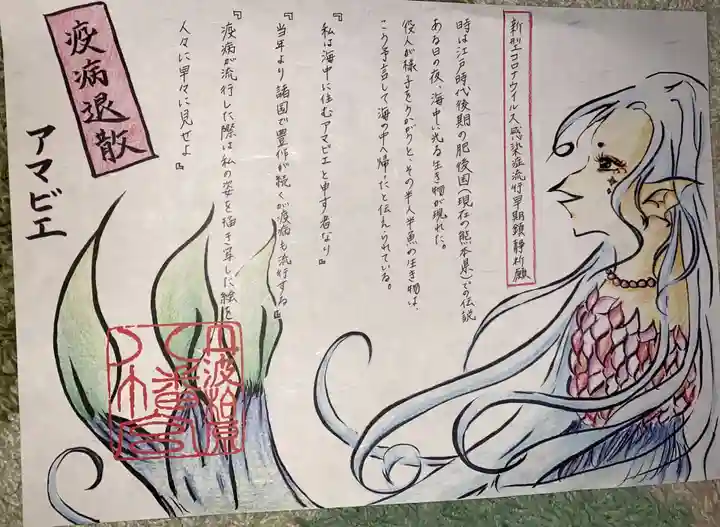 新型コロナウイルス感染症流行早期鎮静祈願
時は江戸時代後期の肥後国(現在の熊本県)での伝説
ある日の夜、海中に光る生き物が現れた。
役人が様子をうかがうと、その半人半魚の生き物は、
こう予言して海の中へ帰ったと伝えられている。
『私は海中に住むアマビエと申す者なり』
『当年より諸国で豊作が続くが疫病も流行する』
『疫病が流行した際は私の姿を描き写した絵を
人々に早々に見せよ』
疫病退散
アマビエ
丹波柏原
八幡宮